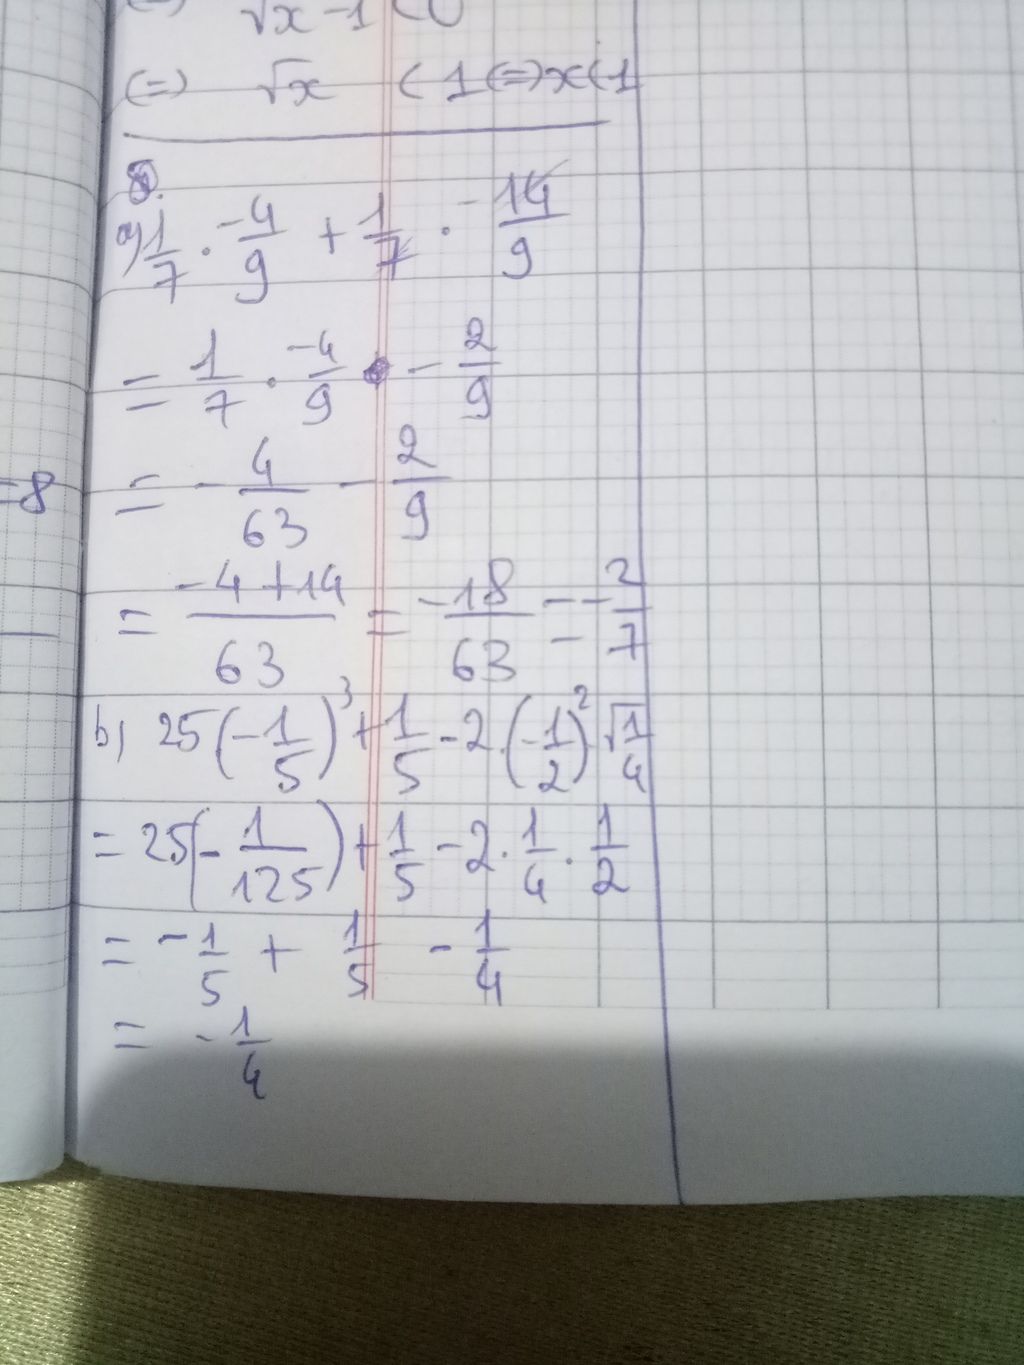 (=) √x - 1 < 0
(=) √x < 1 (=) x < 1
8.
a) 1/7 . -4/9 + 1/7 . -14/9
= 1/7 . -4/9 - 2/9
= - 4/63 - 2/9
=8
= -4+14/63 = -18/63 = -2/7
b) 25(-1/5)³ + 1/5 - 2.(-1/2)² √1/4
= 25(-1/125) + 1/5 - 2 . 1/4 . 1/2
= -1/5 + 1/5 - 1/4
= -1/4